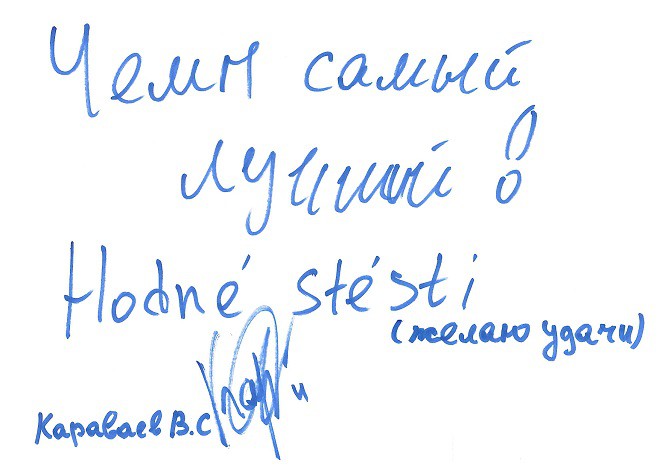 Чемп самый
лучший!
Hodné stésti
(желаю удачи)
Караваев В.С